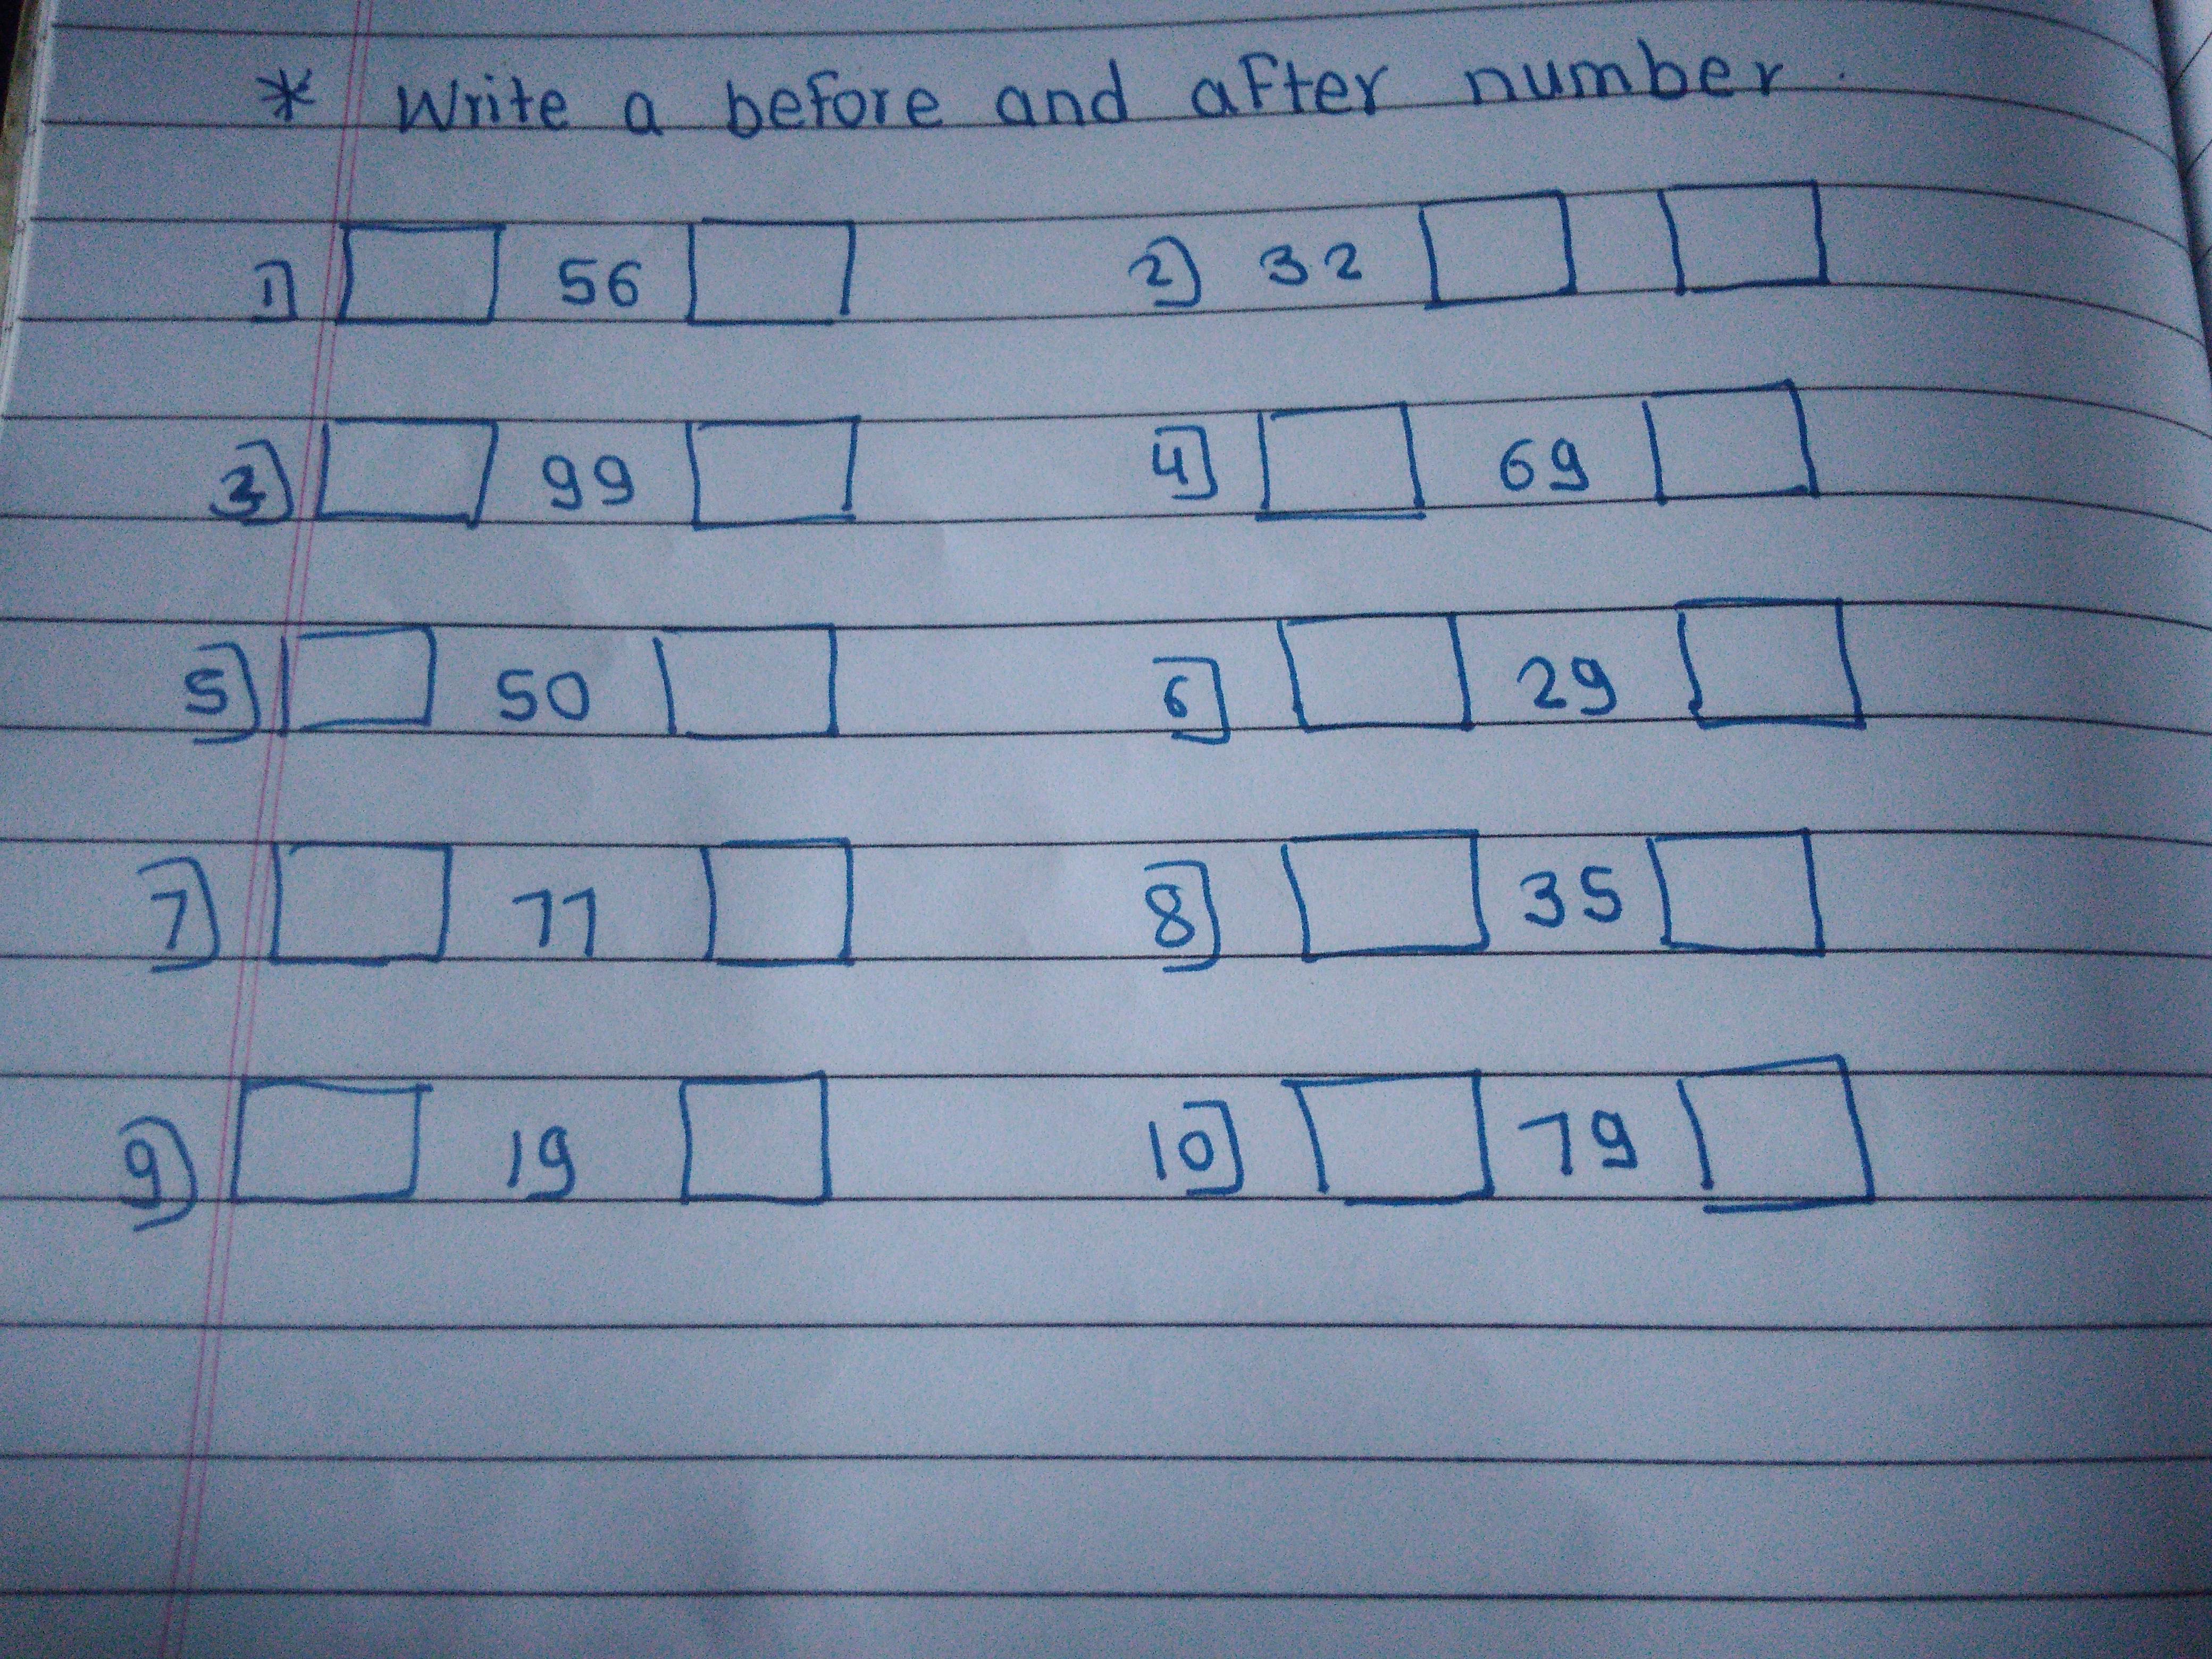 * Write a before and after number.
1) 56 2) 32
3) 99 4) 69
5) 50 6) 29
7) 77 8) 35
9) 19 10) 79